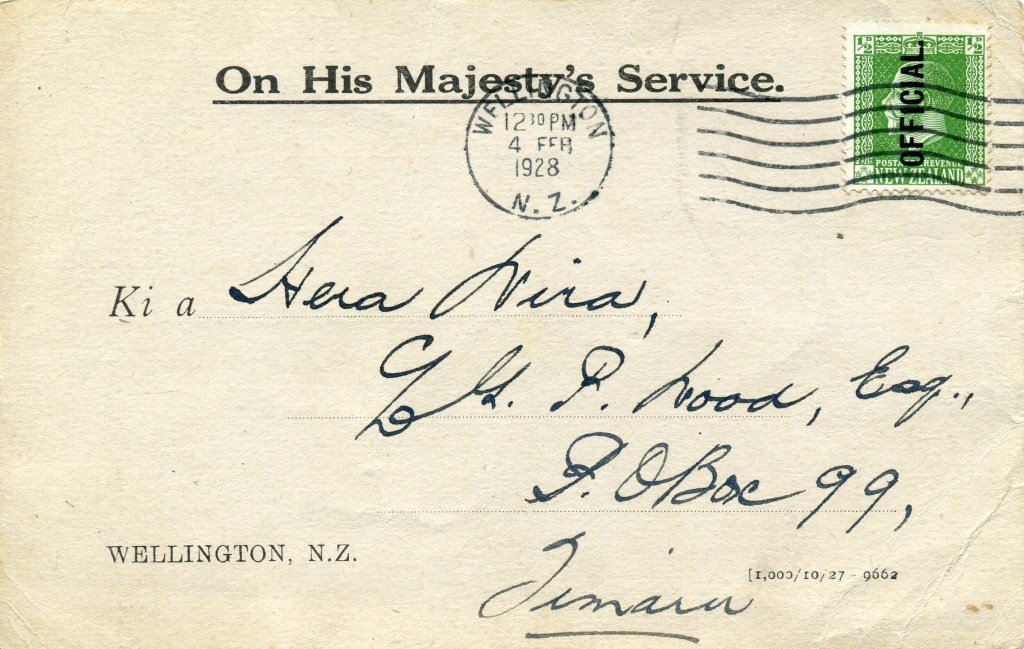 On His Majesty's Service.
½ᴰ ½ᴰ
OFFICIAL.
POSTAGE & REVENUE
NEW ZEALAND
WELLINGTON
12 30 PM
4 FEB
1928
N. Z.
Ki a Hera Wira,
c/o G. P. Wood, Esq.,
P. O Box 99,
Timaru
WELLINGTON, N.Z.
[1,000/10/27-9662